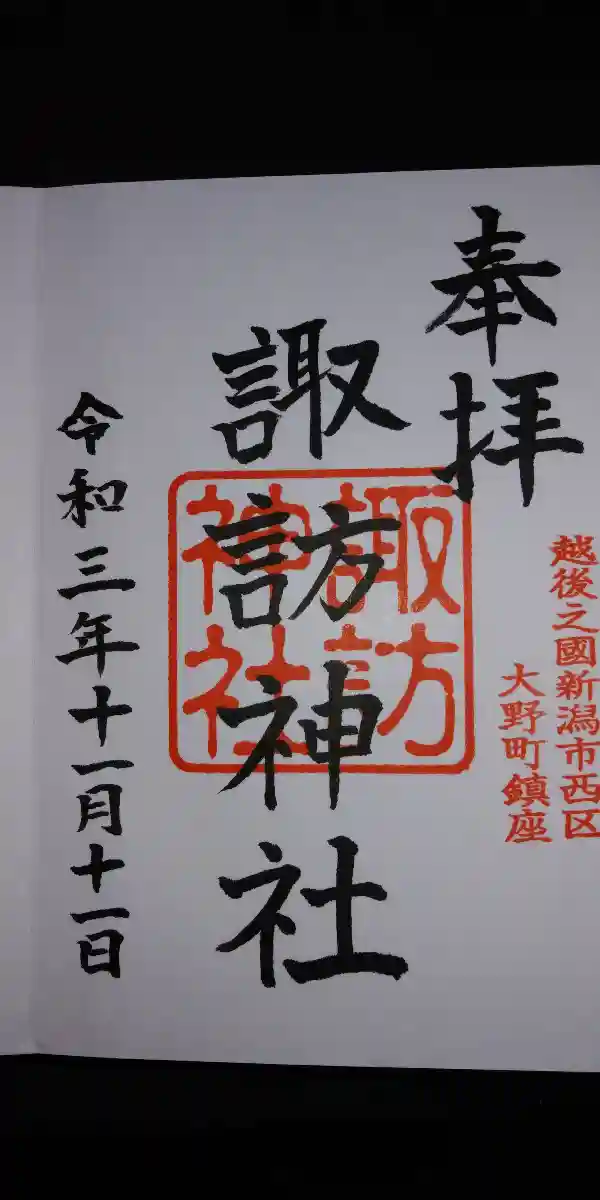 奉拝
越後之國新潟市西区
大野町鎮座
諏訪神社
諏訪
神社
令和三年十一月十一日